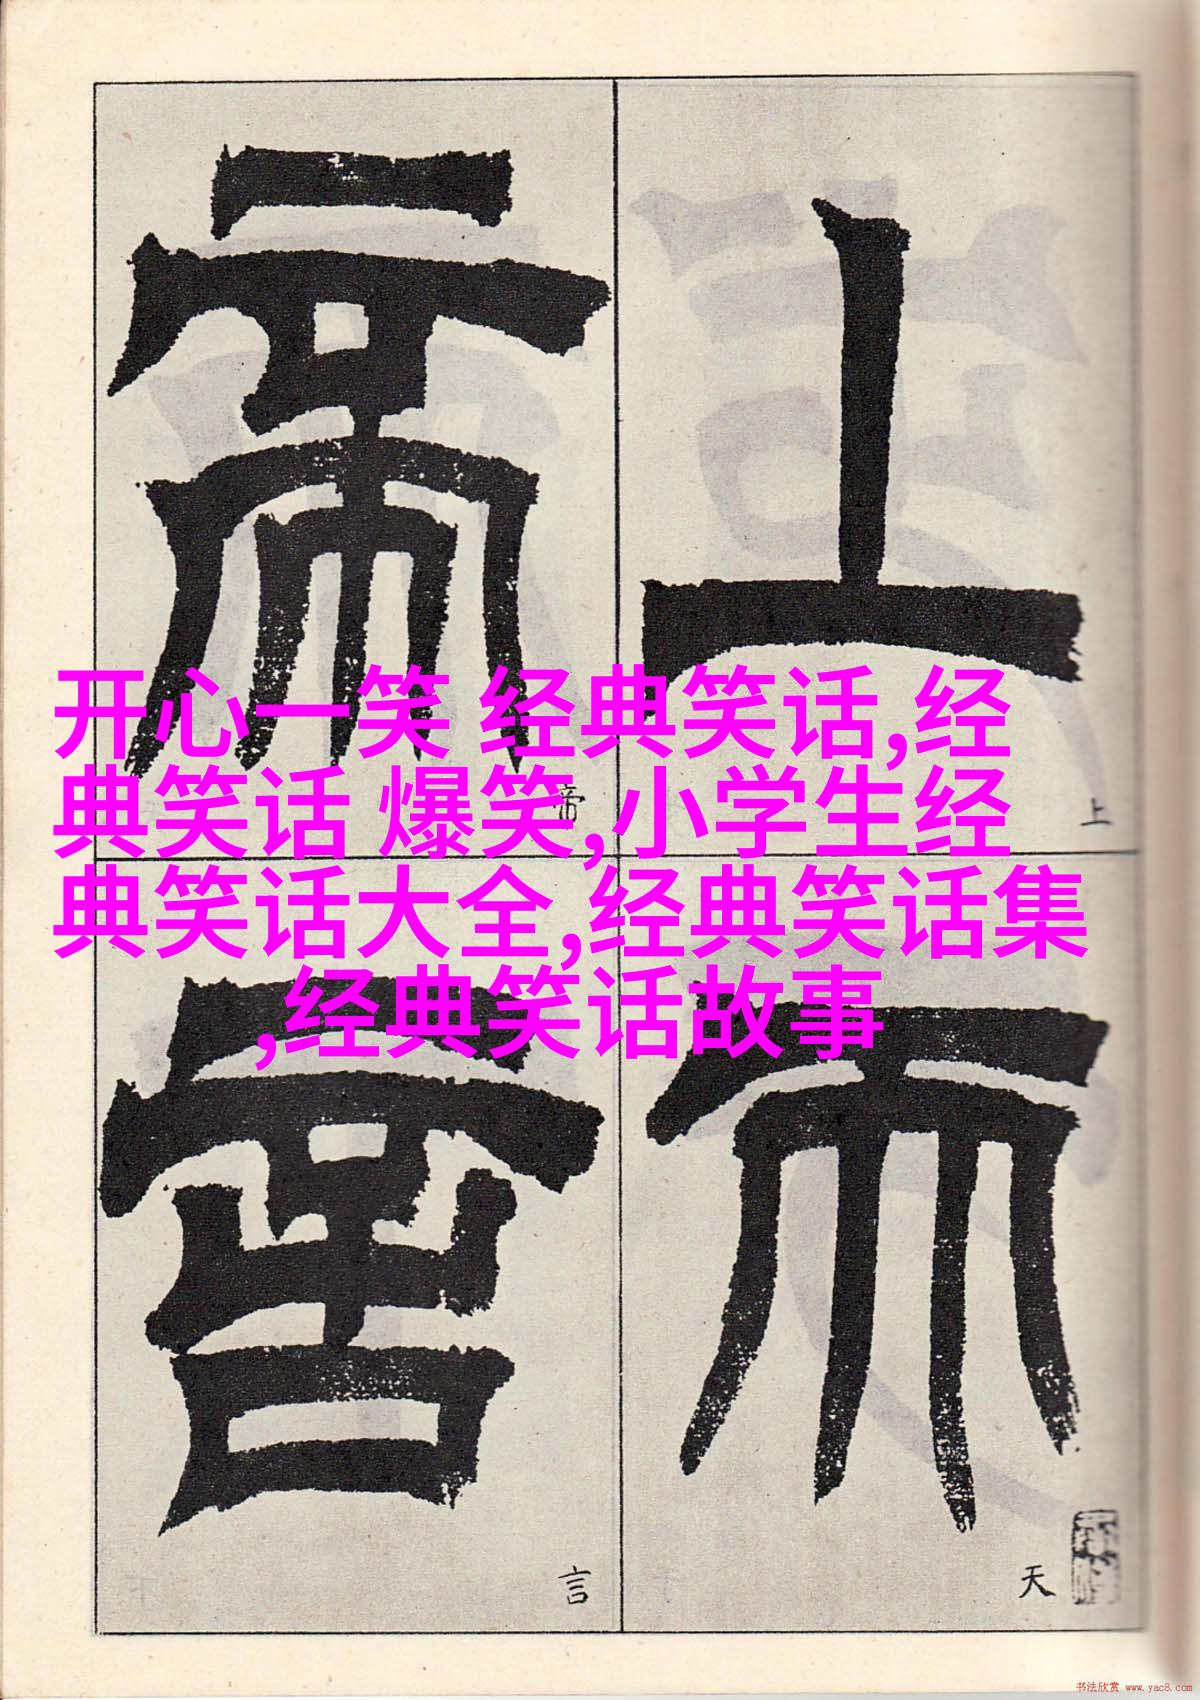 开心一笑 经典笑话,经
典笑话 爆笑,小学生经
典笑话大全,经典笑话集
,经典笑话故事
上
天
帝
言
书法欣赏 www.yac8.com